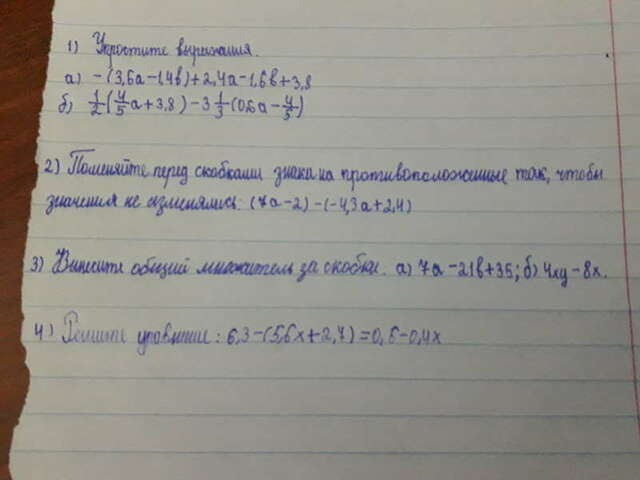 1) Упростите выражения.
а) -(3,6a-1,4b)+2,4a-1,6b+3,8
б) 1/2(4/5a+3,8)-3 1/3(0,6a-4/5)
2) Поменяйте перед скобками знаки на противоположные так, чтобы
значения не изменялись: (7a-2)-(-4,3a+2,4)
3) Вынесите общий множитель за скобки: а) 7a-21b+35; б) 4xy-8x.
4) Решите уравнение: 6,3-(5,6x+2,4)=0,5-0,4x